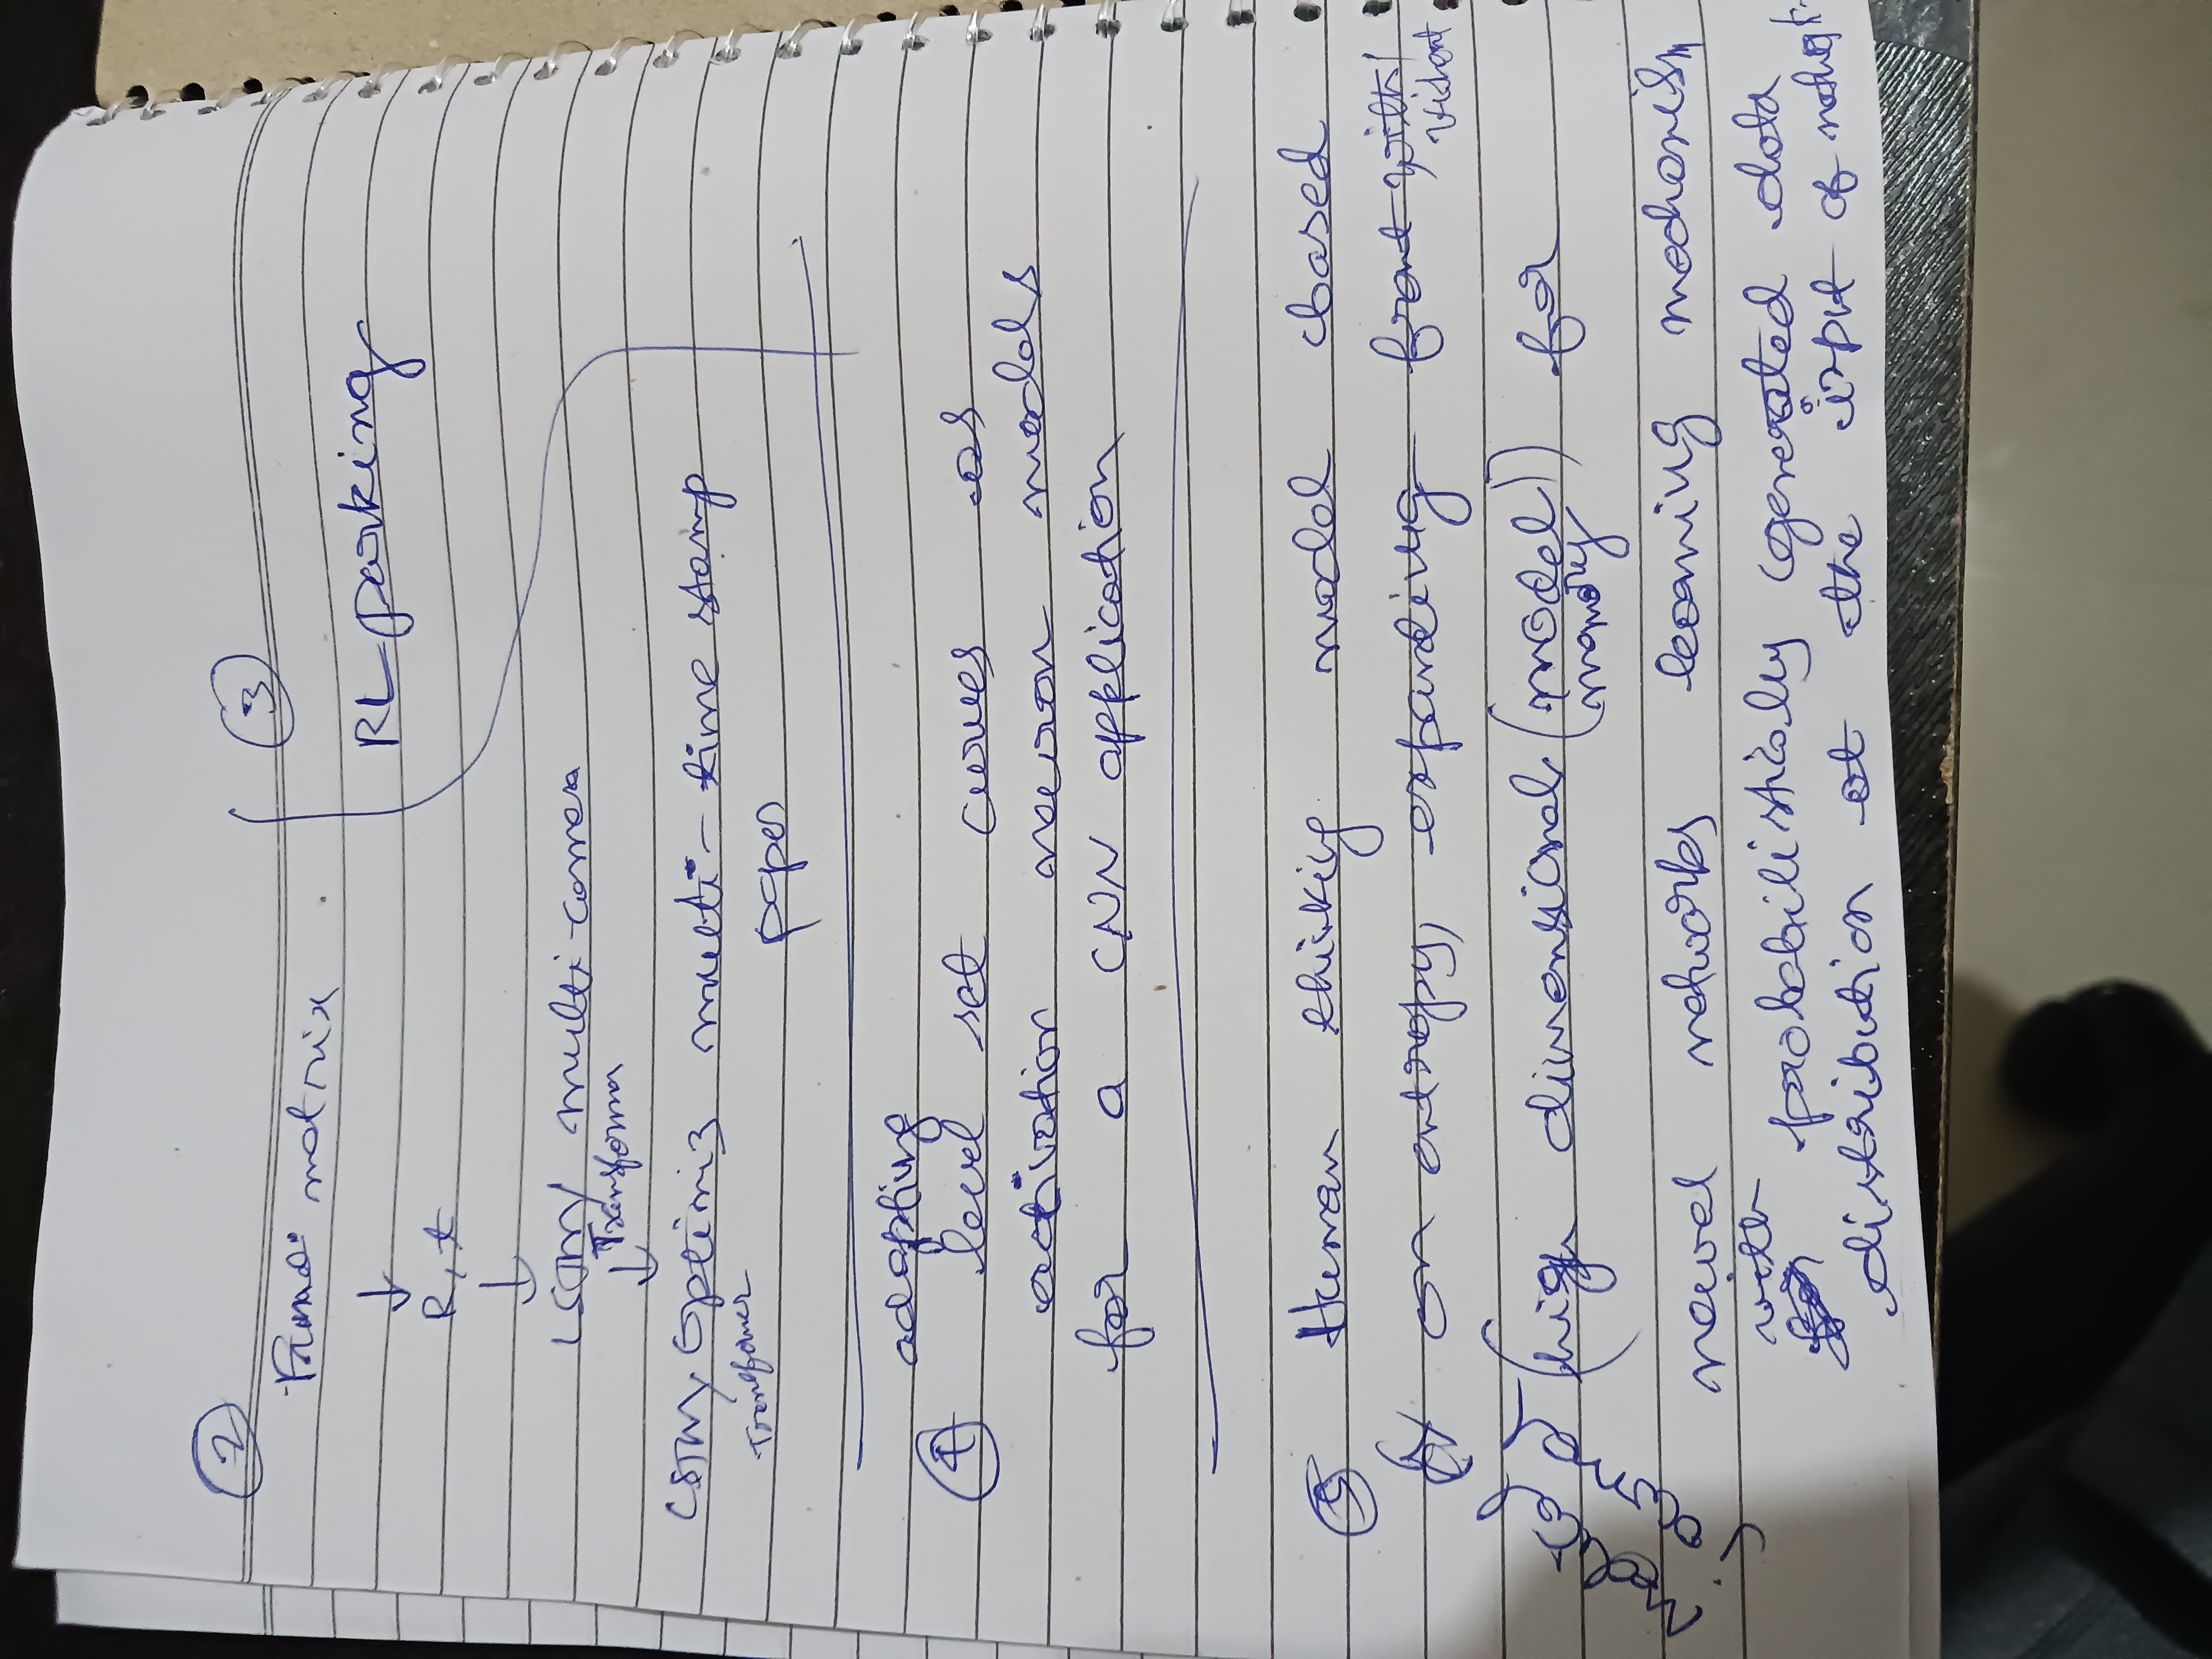 ②
matrix
↓
R, t
↓
LSTM multi-camera
↓ Transforma
LSTM, Optimiz multi-time stamp
Transformer
paper
③
RL-Parking
④ adapting
level set curves as
activation neuron models
for a CNN application
⑤ Human thinking model based
on entropy, expanding
(high dimensional (model)) for
(memory)
novel networks learning mechanism
probabilistically (generated data
distribution at the input of